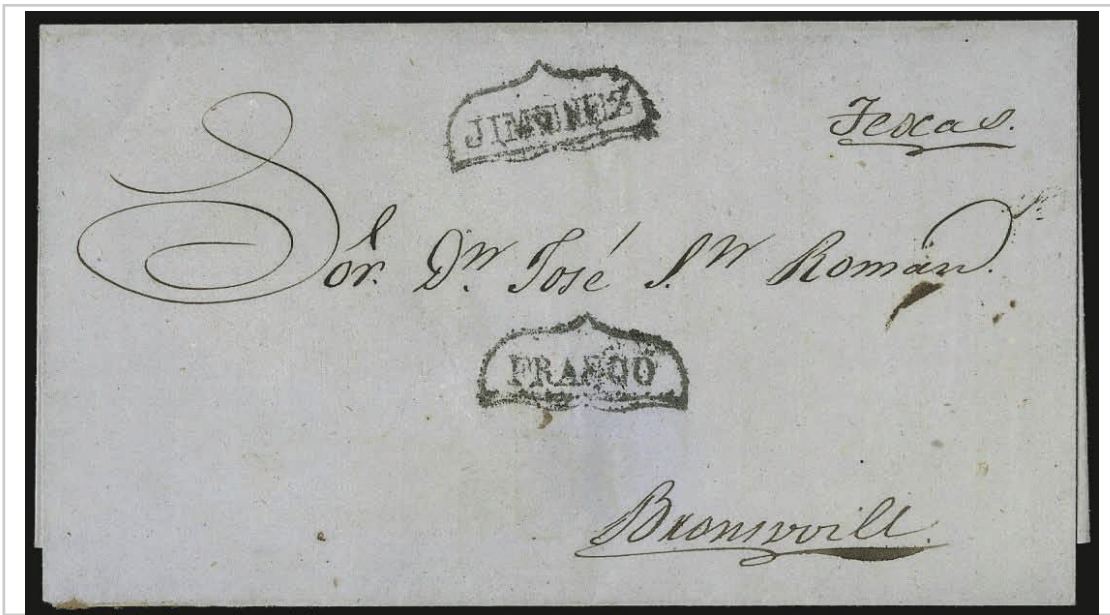 JIMENEZ
Texcas.
Sor. Dn. José Sn Román.
FRANCO
Bronsvill.